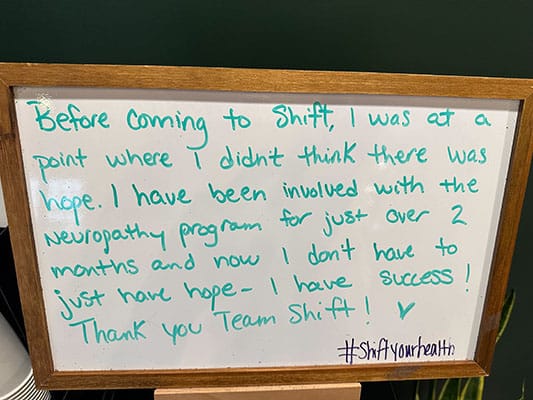 Before coming to Shift, I was at a
point where I didn't think there was
hope. I have been involved with the
Neuropathy program for just over 2
months and now I don't have to
just have hope- I have success!
Thank you Team Shift! ♥
#Shiftyourhealth